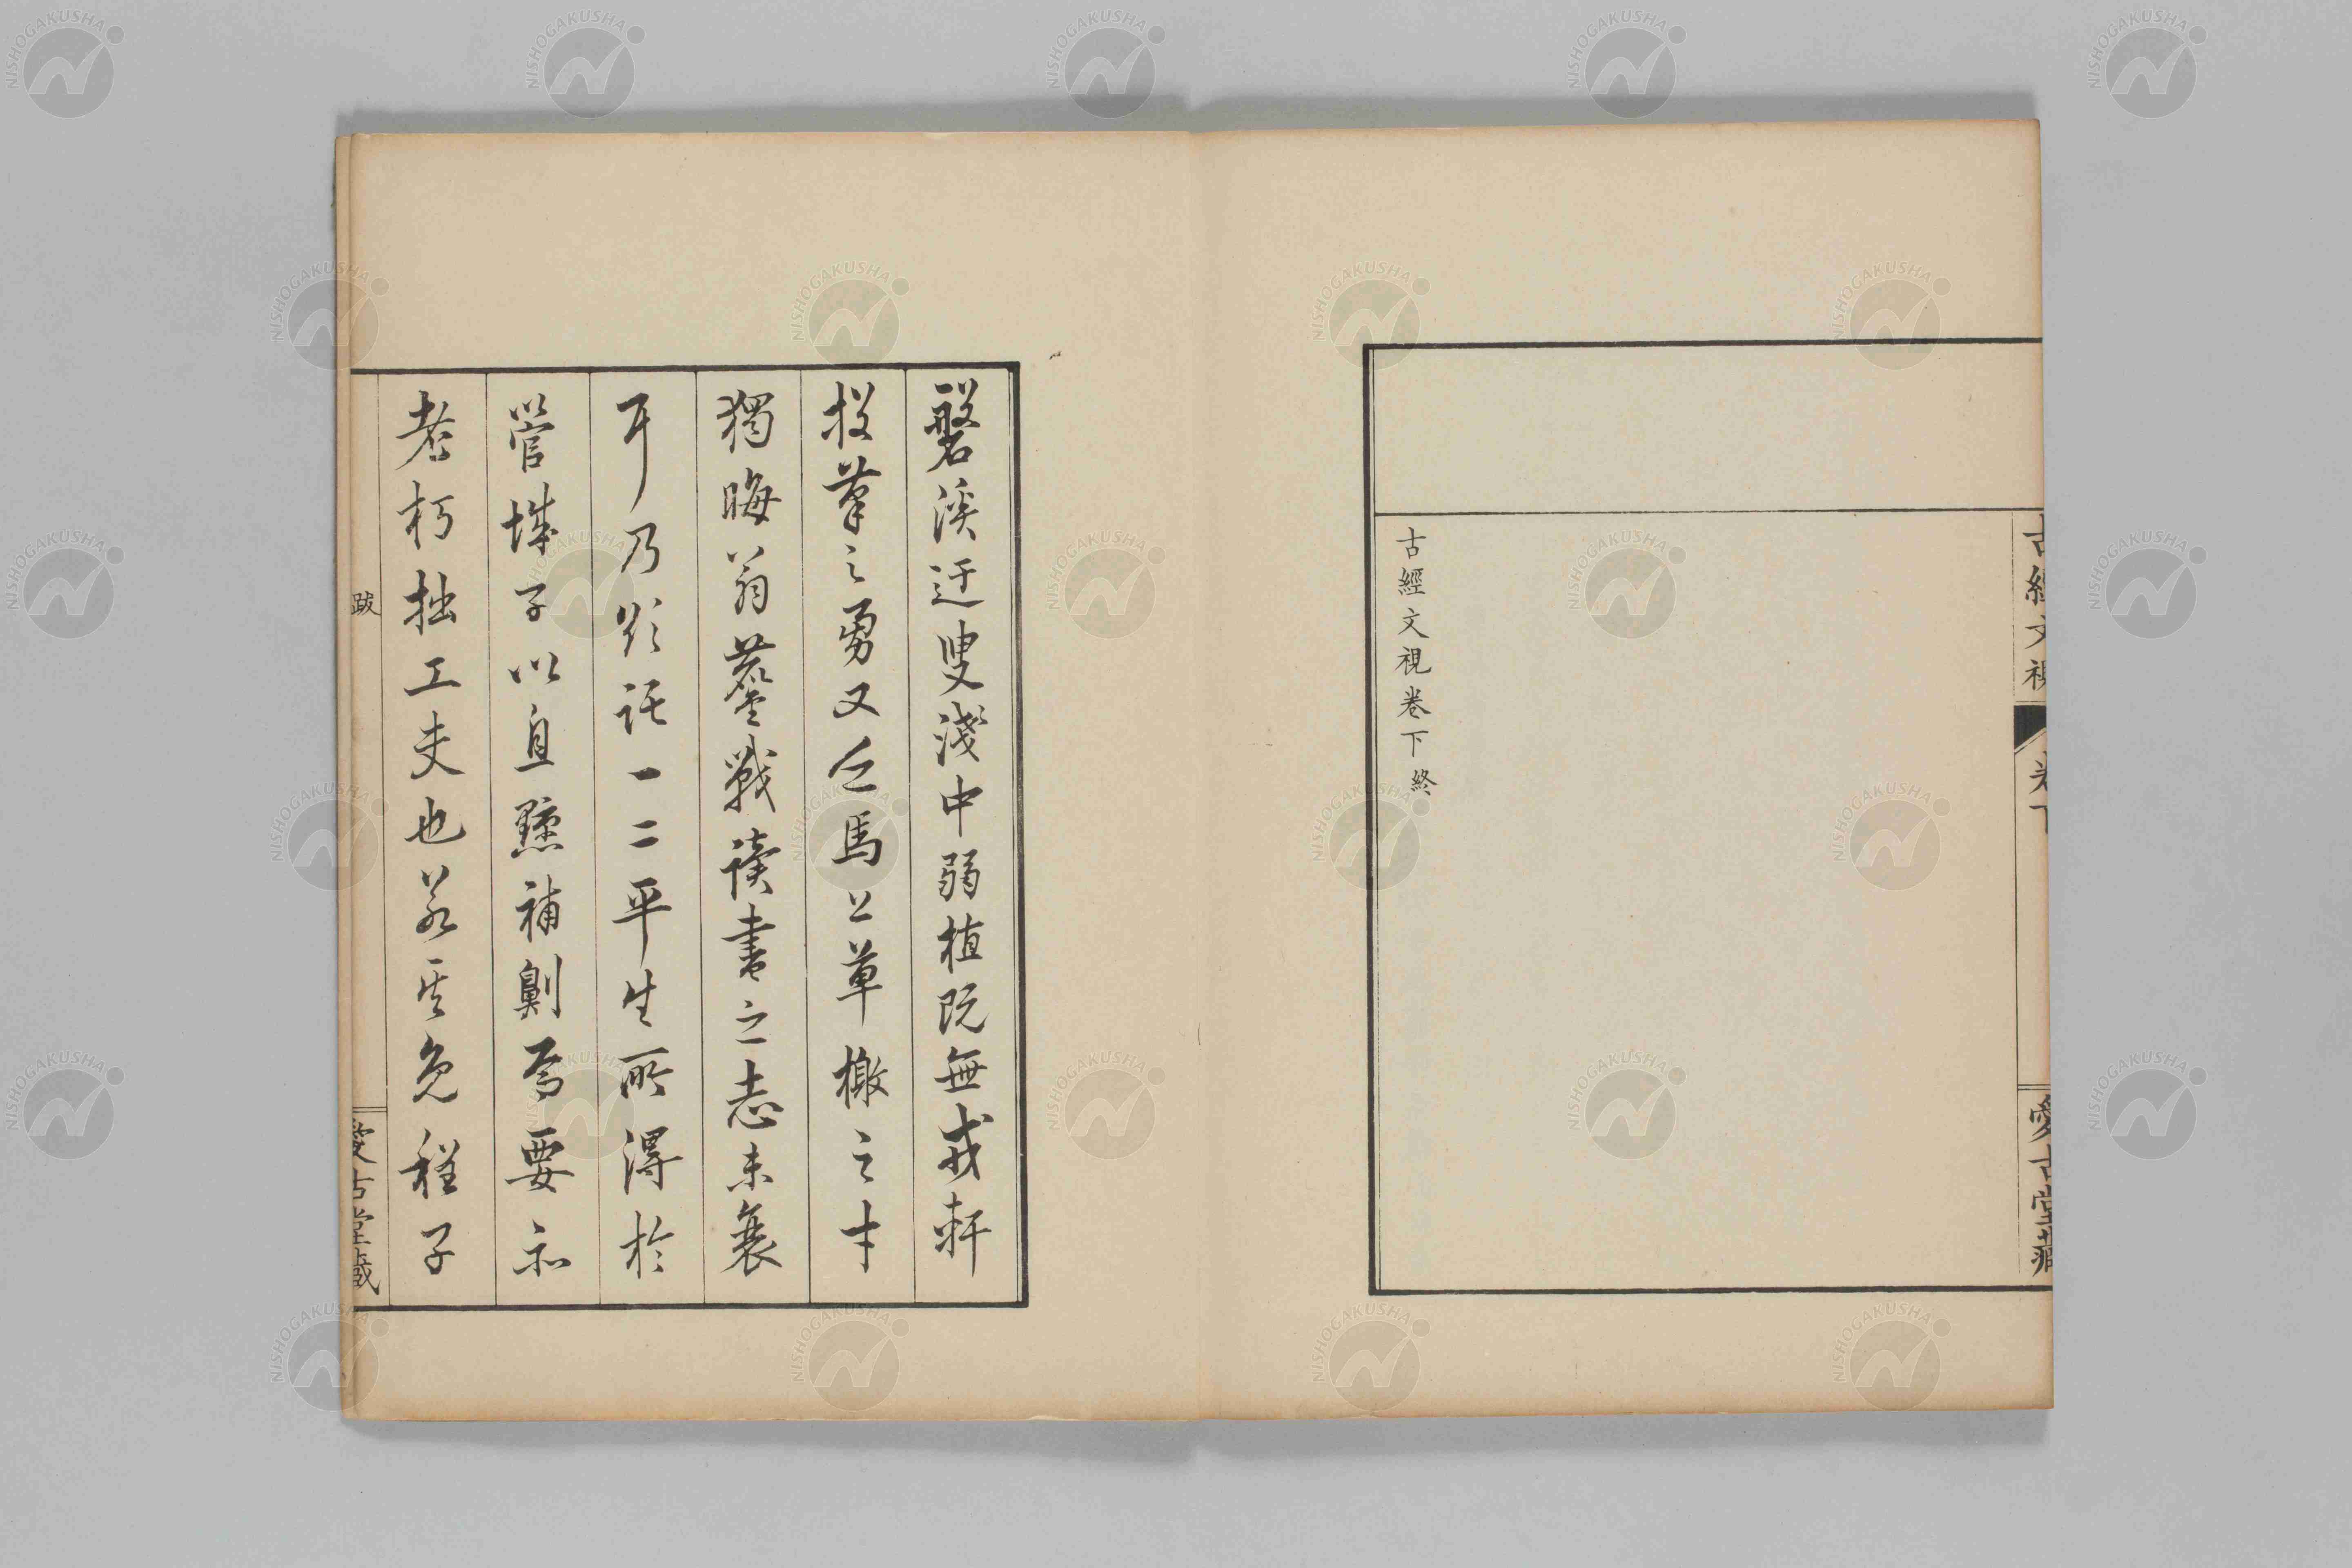 古經文視
卷下
愛古堂藏
古經文視卷下終
磐溪迂叟淺中弱植既無戎軒
投筆之勇又乏馬上草檄之才
獨晦翁鏖戰讀書之志未衰
耳乃欲託一二平生所得於
管城子以息黥補劓焉要亦
老朽拙工夫也若其免程子
跋
愛古堂藏
NISHOGAKUSHA